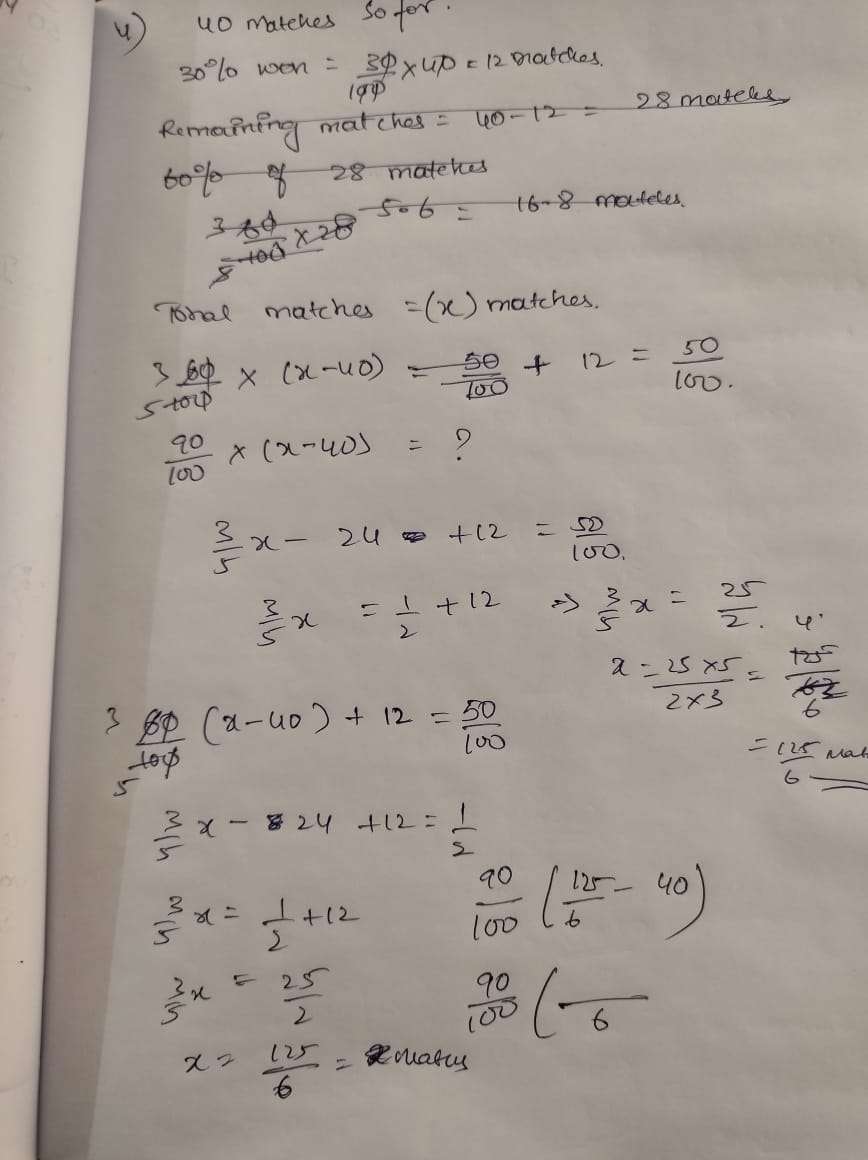 4) 40 matches so for.
30% won = 30/100 x 40 = 12 matches.
Remaining matches = 40-12 = 28 matches
60% of 28 matches
3 60/5 100 x 28 = 16.8 matches.
Total matches = (x) matches.
3 60/5 100 x (x-40) = 50/100 + 12 = 50/100.
90/100 x (x-40) = ?
3/5 x - 24 +12 = 50/100.
3/5 x = 1/2 + 12 => 3/5 x = 25/2.
x = 25 x 5/2 x 3 = 125/6
= 125/6 mat
3 60/5 100 (x-40) + 12 = 50/100
3/5 x - 24 +12 = 1/2
3/5 x = 1/2 +12 90/100 (125/6 - 40)
3/5 x = 25/2 90/100 ( /6
x = 125/6 =